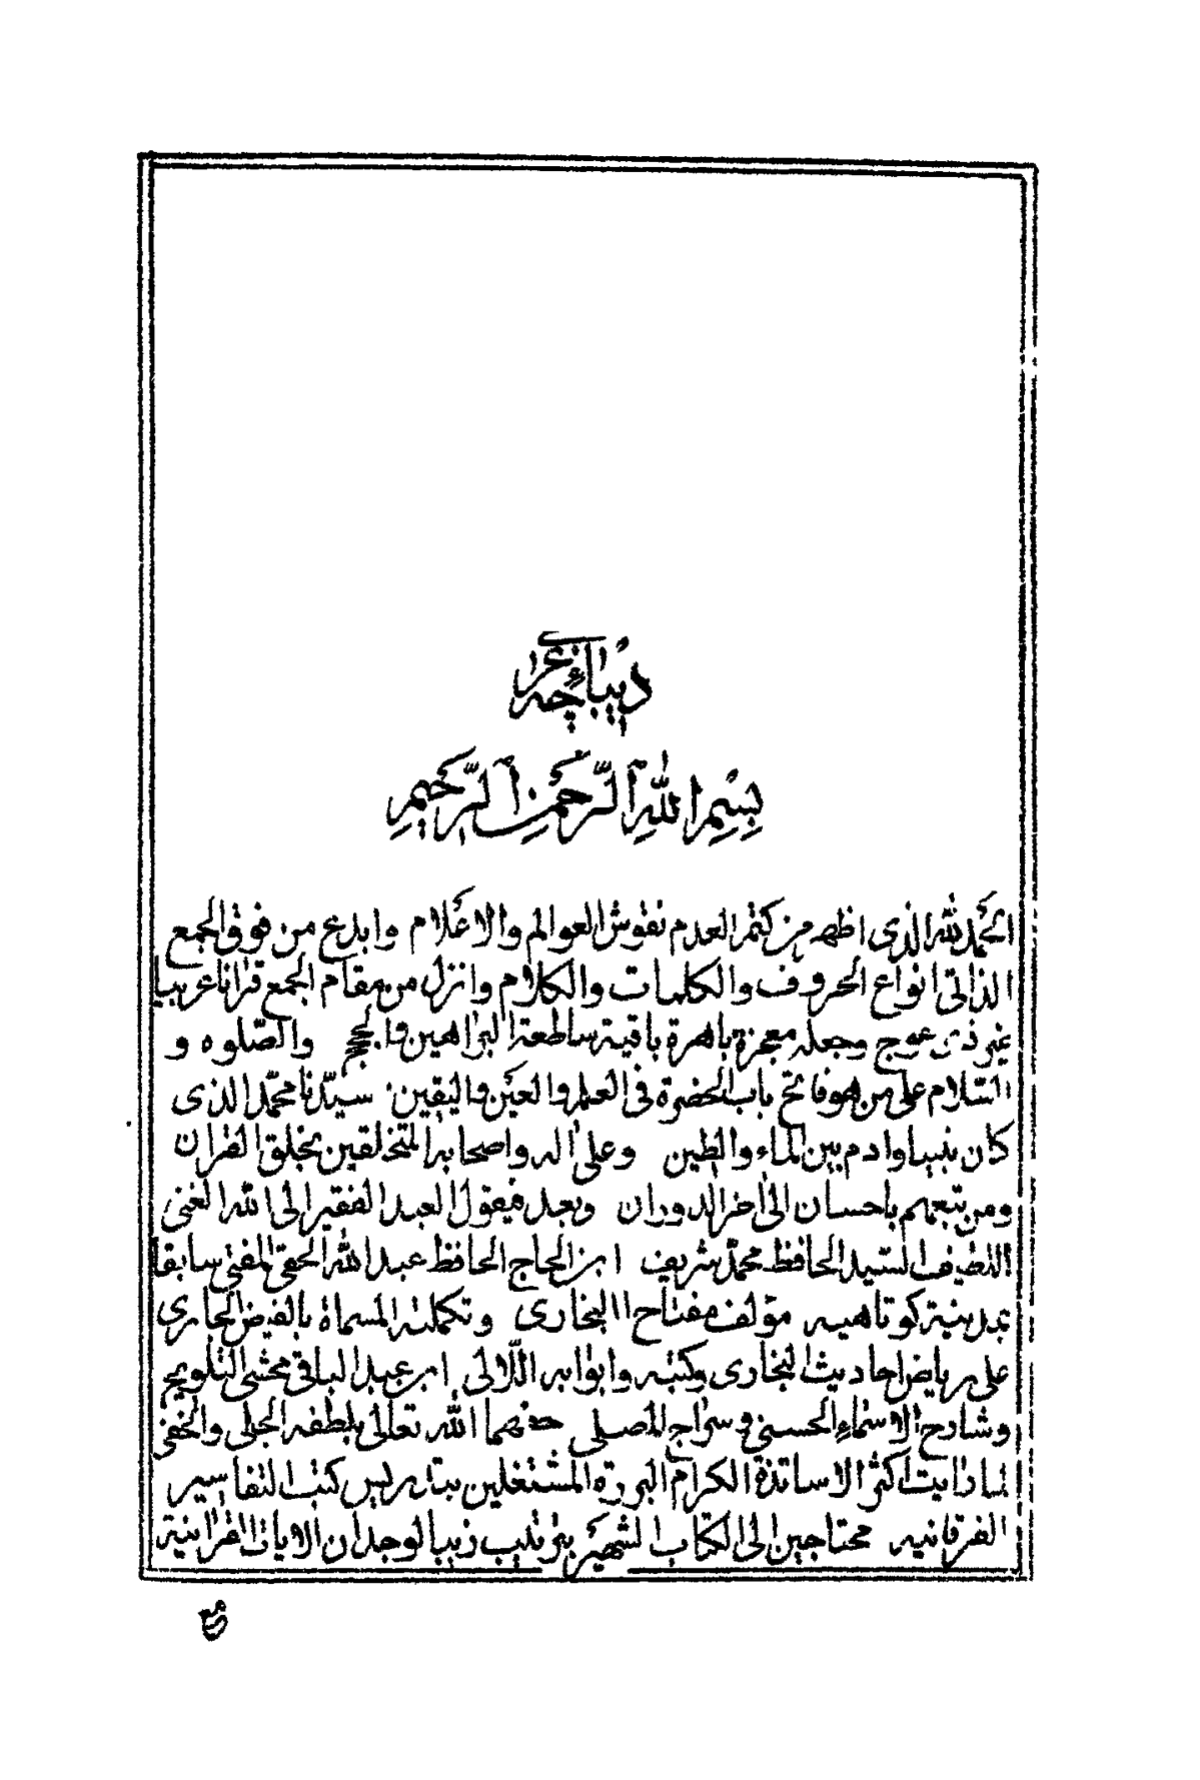 ديباچۀ عربى
بِسْمِ اللهِ الرَّحْمٰنِ الرَّحِيمِ
الحمد لله الذى اظهر من كتم العدم نقوش العوالم والاعلام وابدع من فوق الجمع
الذاتى انواع الحروف والكلمات والكلام وانزل من مقام الجمع قرانا عربيا
غير ذى عوج وجعله معجزة باهرة باقية ساطعة البراهين والحجج والصّلوه و
السّلام على من هو فاتح باب الحضرة فى العلم والعين واليقين سيّدنا محمّد الذى
كان نبيا وادم بين الماء والطين وعلى اله واصحابه المتخلقين بخلق القران
ومن تبعهم باحسان الى اخر الدوران وبعد فيقول العبد الفقير الى الله الغنى
اللطيف السّيد الحافظ محمّد شريف ابن الحاج الحافظ عبد الله الحقى المفتى سابقا
بمدينة كوتاهيه مؤلف مفتاح البخارى وتكملته المسماة بالفيض الجارى
على رياض احاديث البخارى وكتبه وابوابه اللّالى ابن عبد الباقى محشى التلويح
وشارح الاسماء الحسنى و سراج المصلى حفهما الله تعالى بلطفه الجلى والخفى
لما رايت اكثر الاساتذة الكرام البررة المشتغلين بتدريس كتب التفاسير
الفرقانيه محتاجين الى الكتاب الشهير بترتيب زيبا لوجدان الايات القرانية